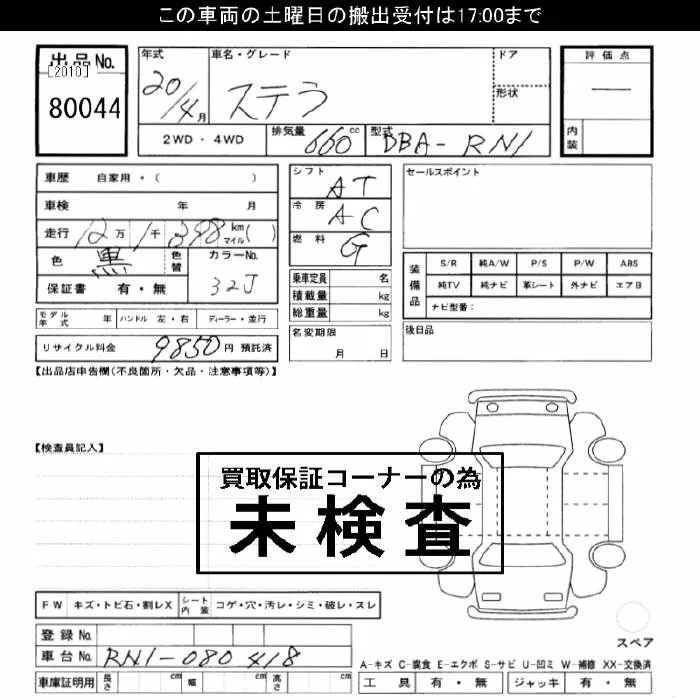 この車両の土曜日の搬出受付は17:00まで
出品No.
[2010]
80044
年式
20/4月
車名・グレード
ステラ
ドア
形状
評価点
—
内装
2WD・4WD
排気量 660 cc
型式 DBA-RN1
車歴 自家用・( )
車検 年 月
走行 12万1千398 km マイル( )
色 黒 色替
カラーNo. 32J
保証書 有・無
モデル年式 年 ハンドル 左・右 ディーラー・並行
リサイクル料金 9850円 預託済
シフト AT
冷房 AC
燃料 G
乗車定員 名
積載量 kg
総重量 kg
名変期限
月 日
セールスポイント
装備品
S/R 純A/W P/S P/W ABS
純TV 純ナビ 革シート 外ナビ エアB
ナビ型番:
後日品
【出品店申告欄(不良箇所・欠品・注意事項等)】
【検査員記入】
買取保証コーナーの為
未検査
FW キズ・トビ石・割レX シート内装 コゲ・穴・汚レ・シミ・破レ・スレ
登録No.
車台No. RN1-080418
車庫証明用 長さ cm 幅 cm 高さ cm
スペア
A-キズ C-腐食 E-エクボ S-サビ U-凹ミ W-補修 XX-交換済
工具 有・無 ジャッキ 有・無